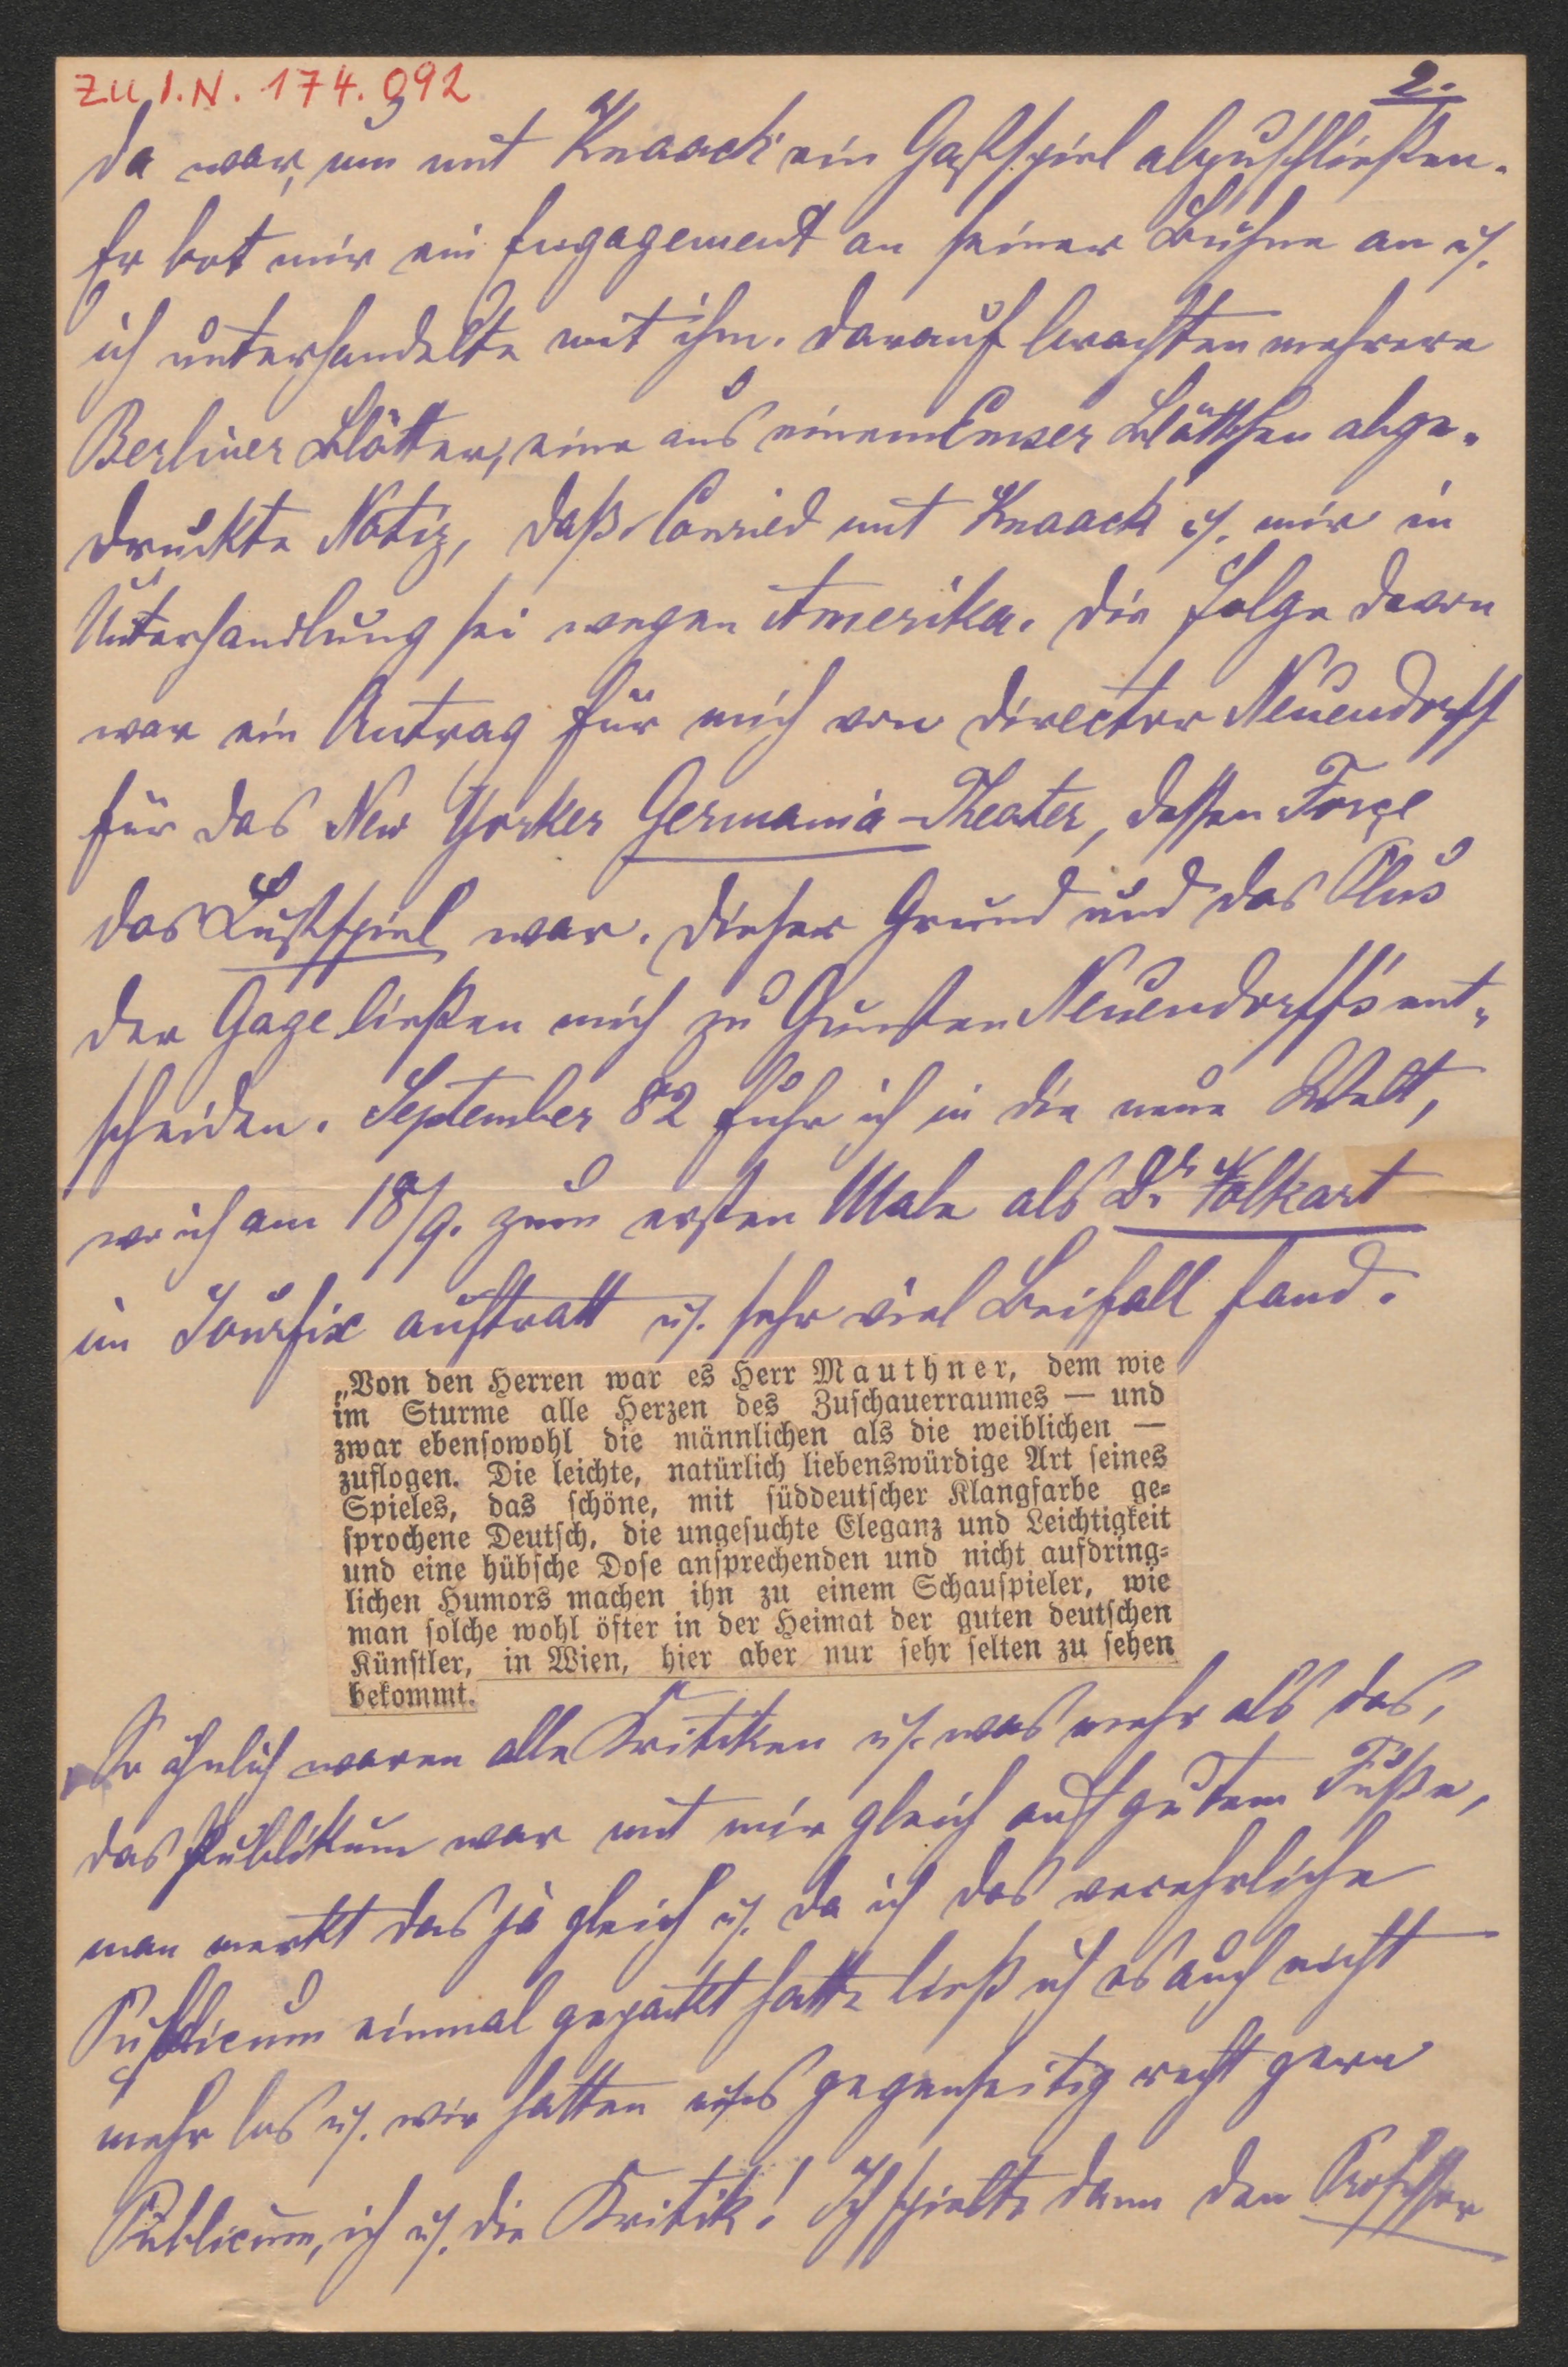 ZU I.N. 174.092
2.
da war, um mit Knaack ein Gastspiel abzuschließen.
Er bot mir ein Engagement an seiner Bühne an u.
ich unterhandelte mit ihm. Darauf brachten mehrere
Berliner Blätter, eine aus einem Emser Blättchen abge-
druckte Notiz, daß Conried mit Knaack u. mir in
Unterhandlung sei wegen Amerika. Die Folge davon
war ein Antrag für mich von Director Neuendorff
für das New Yorker Germania-Theater, dessen Force
das Lustspiel war. Dieser Grund und das Plus
der Gage ließen mich zu Gunsten Neuendorff's ent-
scheiden. September 82 fuhr ich in die neue Welt,
wo ich am 18/9. zum ersten Male als Dr. Volkart
im Jourfix auftratt u. sehr viel Beifall fand.
„Von den Herren war es Herr Mauthner, dem wie
im Sturme alle Herzen des Zuschauerraumes — und
zwar ebensowohl die männlichen als die weiblichen —
zuflogen. Die leichte, natürlich liebenswürdige Art seines
Spieles, das schöne, mit süddeutscher Klangfarbe ge-
sprochene Deutsch, die ungesuchte Eleganz und Leichtigkeit
und eine hübsche Dose ansprechenden und nicht aufdring-
lichen Humors machen ihn zu einem Schauspieler, wie
man solche wohl öfter in der Heimat der guten deutschen
Künstler, in Wien, hier aber nur sehr selten zu sehen
bekommt.
So ähnlich waren alle Kritiken u. was mehr als das,
das Publikum war mit mir gleich auf gutem Fuße,
man merkt das ja gleich u. da ich das verehrliche
Publicum einmal gepackt hatte ließ ich es auch nicht
mehr los u. wir hatten uns gegenseitig recht gern
Publicum, ich u. die Kritik! Ich spielte dann den